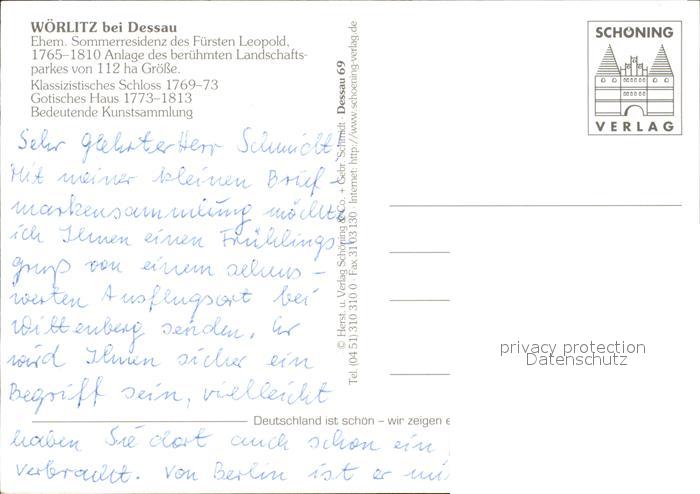 WÖRLITZ bei Dessau
Ehem. Sommerresidenz des Fürsten Leopold,
1765–1810 Anlage des berühmten Landschafts-
parkes von 112 ha Größe.
Klassizistisches Schloss 1769–73
Gotisches Haus 1773–1813
Bedeutende Kunstsammlung
SCHÖNING
VERLAG
© Herst. u. Verlag Schöning & Co. + Gebr. Schmidt · Dessau 69
Tel. (04 51) 310 310 0 · Fax 31 03 130 · Internet: http://www.schoening-verlag.de
Sehr geehrter Herr Schmidt,
Mit meiner kleinen Brief-
markensammlung möchte
ich Ihnen einen Frühlings-
gruß von einem sehens-
werten Ausflugsort bei
Wittenberg senden. Er
wird Ihnen sicher ein
Begriff sein, vielleicht
Deutschland ist schön – wir zeigen e
haben Sie dort auch schon ein
verbracht. Von Berlin ist er mi
privacy protection
Datenschutz